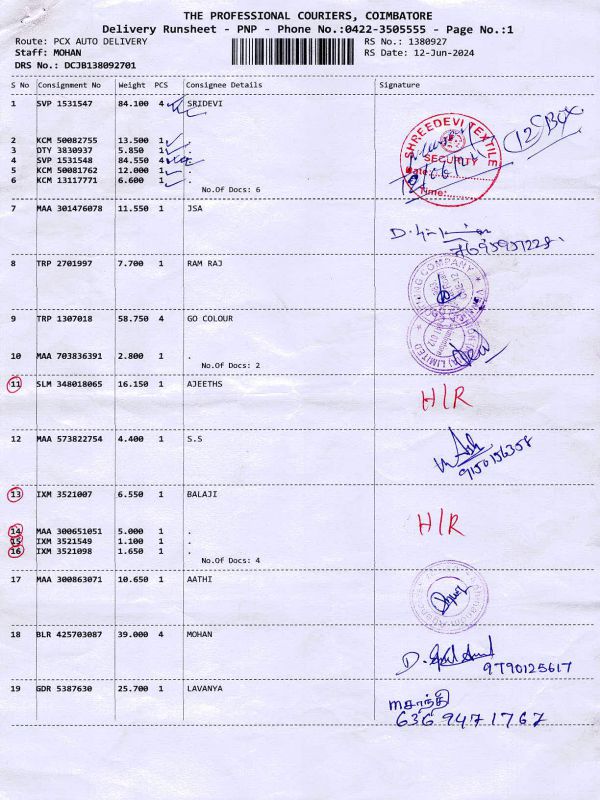 THE PROFESSIONAL COURIERS, COIMBATORE
Delivery Runsheet - PNP - Phone No.:0422-3505555 - Page No.:1
Route: PCX AUTO DELIVERY RS No.: 1380927
Staff: MOHAN RS Date: 12-Jun-2024
DRS No.: DCJB138092701
S No Consignment No Weight PCS Consignee Details Signature
1 SVP 1531547 84.100 4 SRIDEVI
2 KCM 50082755 13.500 1 .
3 DTY 3830937 5.850 1 .
4 SVP 1531548 84.550 4 .
5 KCM 50081762 12.000 1 .
6 KCM 13117771 6.600 1 .
No.Of Docs: 6
SHREEDEVI TEXTILE
SECURITY
Date:
Time:
12 BOX
7 MAA 301476078 11.550 1 JSA
8 TRP 2701997 7.700 1 RAM RAJ
9 TRP 1307018 58.750 4 GO COLOUR
10 MAA 703836391 2.800 1 .
No.Of Docs: 2
11 SLM 348018065 16.150 1 AJEETHS H/R
12 MAA 573822754 4.400 1 S.S
9150156358
13 IXM 3521007 6.550 1 BALAJI
14 MAA 300651051 5.000 1 .
15 IXM 3521549 1.100 1 .
16 IXM 3521098 1.650 1 .
No.Of Docs: 4
H/R
17 MAA 300863071 10.650 1 AATHI
18 BLR 425703087 39.000 4 MOHAN
9790125617
19 GDR 5387630 25.700 1 LAVANYA
636 9471767